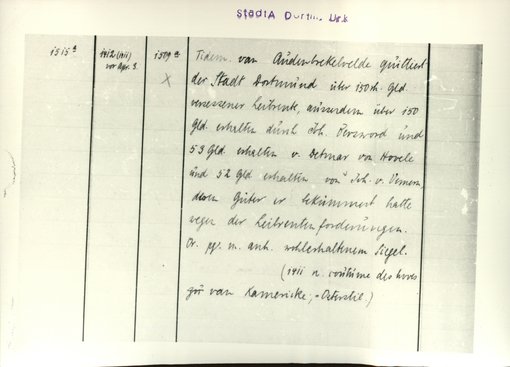 StadtA Dortm. Urk
1515a
1412 (1411) vor Apr. 3.
1509a
X
Tidem. van Audenbrekelvelde quittiert
der Stadt Dortmund über 150 rh. Gld.
versessener Leibrente, ausserdem über 150
Gld. erhalten durch Joh. Oversword und
53 Gld. erhalten v. Detmar von Hovele
und 52 Gld. erhalten von Joh. v. Unnern,
deren Güter er bekümmert hatte
wegen der Leibrentenforderungen.
Or. pg. m. anh. wohlerhaltenem Siegel.
(1411 n. coutume des
van Kamericke, = Osterstil.)